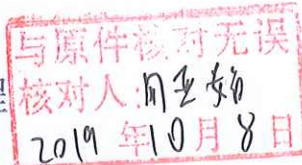 与原件核对无误
核对人:
2019年10月8日